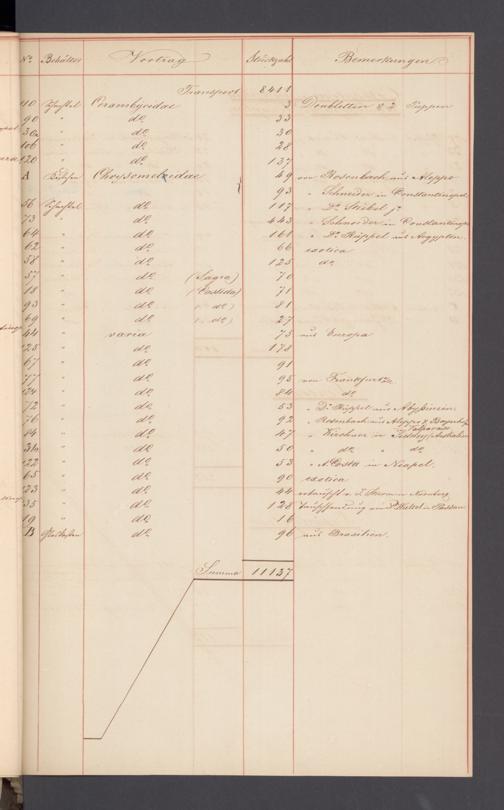 No. Behälter Vortrag Stückzahl Bemerkungen
Transport 8411
110 Schachtel Cerambycidae 3 Doubletten & 2 Puppen
90 " do. 33
30a " do. 30
106 " do. 28
120 " do. 137
A Chrysomelidae 49 von Rosenbach aus Aleppo
93 " Schneider in Constantinopel
56 Schachtel do. 117 " Dr. Stiebel jr
73 " do. 443 " Schneider in Constantinopel
64 " do. 161 " Dr. Rüppel aus Aegypten
62 " do. 66 exotica
58 " do. 125 do.
57 " do. (Sagra) 70
18 " do. (Cassida) 71
93 " do. ( " do.) 81
69 " do. ( " do.) 27
44 " varia 75 aus Europa
25 " do. 178
67 " do. 91
77 " do. 95 von Frankfurt
124 " do. 84 do.
72 " do. 53 " Dr. Rüppel aus Abyssinien
76 " do. 92 " Rosenbach aus Aleppo &
84 " do. 47 " Kirchner in Sidney, Australien
31a " do. 50 " do. " do.
122 " do. 53 " A Costa in Neapel
65 " do. 90 exotica
23 " do. 44 v. J. Sturm in Nürnberg
35 " do. 128 in Passau
19 " do. 16
B Glaskasten do. 96 aus Brasilien
Summa 11137